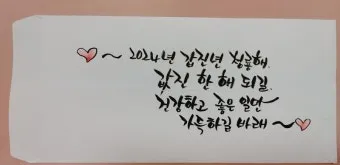 ~ 2024년 갑진년 청룡해.
값진 한 해 되길.
건강하고 좋은 일만
가득하길 바래~